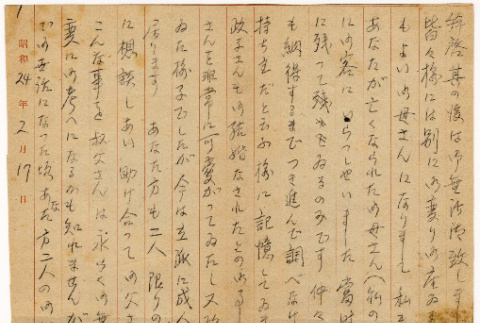 拝啓其の後は御無沙汰致しま
皆々様には別に御変りの座ゐま
もよいお母さんになりまして私
あなたが亡くなられたお母さんへ
にお客にいらつしやいました当時
に残って残ってゐるのみです仲々
も納得するまでつき進んで調べなけ
持ち主だと云ふ様に記憶してゐま
政子さんも御結婚なされたとの
さんを非常に可愛がってゐたし又
ゐた様子でしたが今は立派に成人
居ります あなた方も二人限りの
に相談しあい助け合ってお父さ
こんな事を叔父さんは永らくの
変にお考へになるかも知れませんが
でお世話になった頃あなた方二人のお
昭和24年2月17日